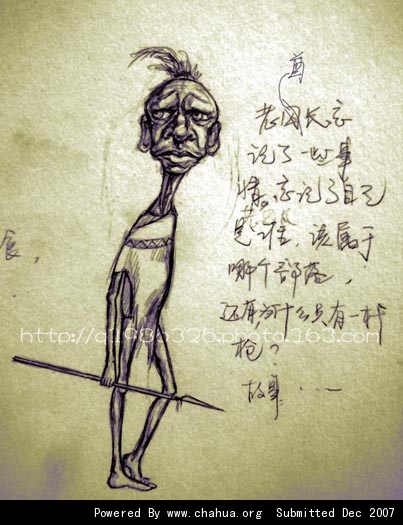 酋
老国长忘
记了一些事
情。忘记了自己
是谁，该属于
哪个部落，
还有为什么只有一杆
枪？
故事.
食，
http://q198b326.photo.163.com
Powered By www.chahua.org Submitted Dec 2007